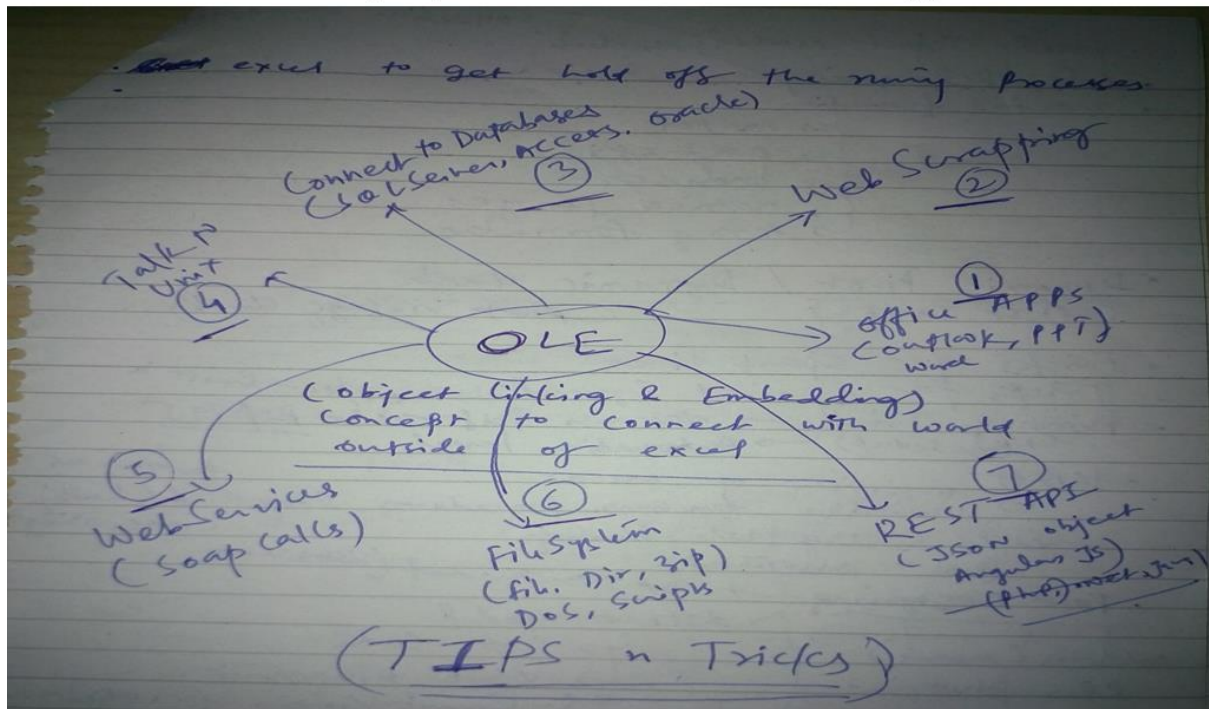 excel to get hold off the runing Processes
Connect to Databases
(SQL Server, Access, Oracle)
③
Web Scrapping
②
Talk n
Unit
④
①
office APPS
(outlook, PPT)
word
OLE
(object linking & Embedding)
concept to connect with world
outside of excel
⑤
WebServices
(Soap calls)
⑥
FileSystem
(file, Dir, zip)
DOS, Scripts
⑦
REST API
(JSON object
Angular JS)
(PHP,)
(TIPS n Tricks)